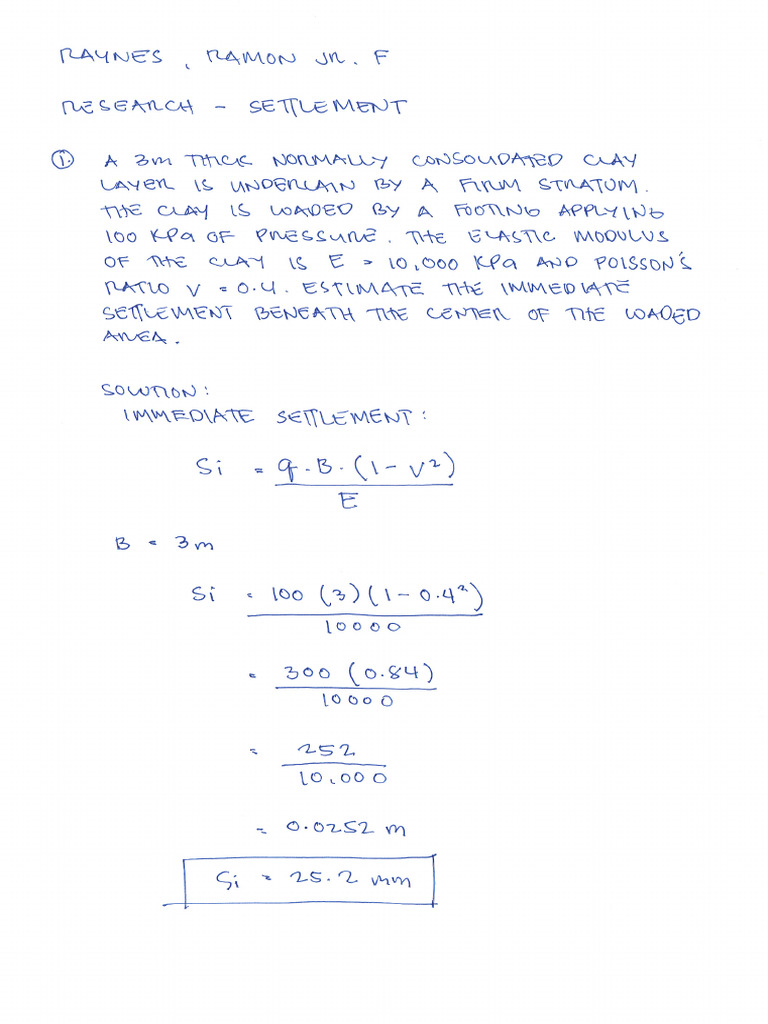 RAYNES, RAMON JR. F
RESEARCH - SETTLEMENT
1. A 3m THICK NORMALLY CONSOLIDATED CLAY
LAYER IS UNDERLAIN BY A FIRM STRATUM.
THE CLAY IS LOADED BY A FOOTING APPLYING
100 KPa OF PRESSURE. THE ELASTIC MODULUS
OF THE CLAY IS E = 10,000 KPa AND POISSON'S
RATIO V = 0.4. ESTIMATE THE IMMEDIATE
SETTLEMENT BENEATH THE CENTER OF THE LOADED
AREA.
SOLUTION:
IMMEDIATE SETTLEMENT:
Si = q.B.(1-V²)
E
B = 3m
Si = 100 (3)(1-0.4²)
10000
= 300 (0.84)
10000
= 252
10,000
= 0.0252 m
Si = 25.2 mm